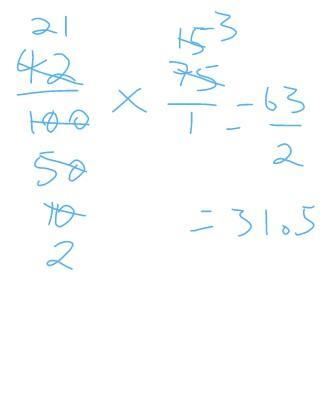 21 15 3
42 75
100 × 1 = 63
50 2
10 = 31.5
2